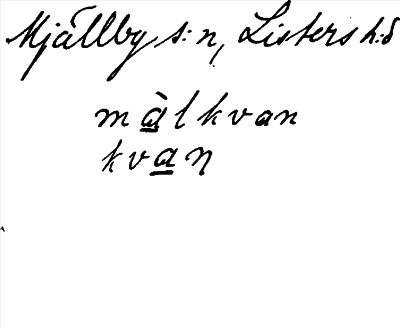 Mjällby s:n, Listers h:d
mà̱lkvan
kva̱ɳ